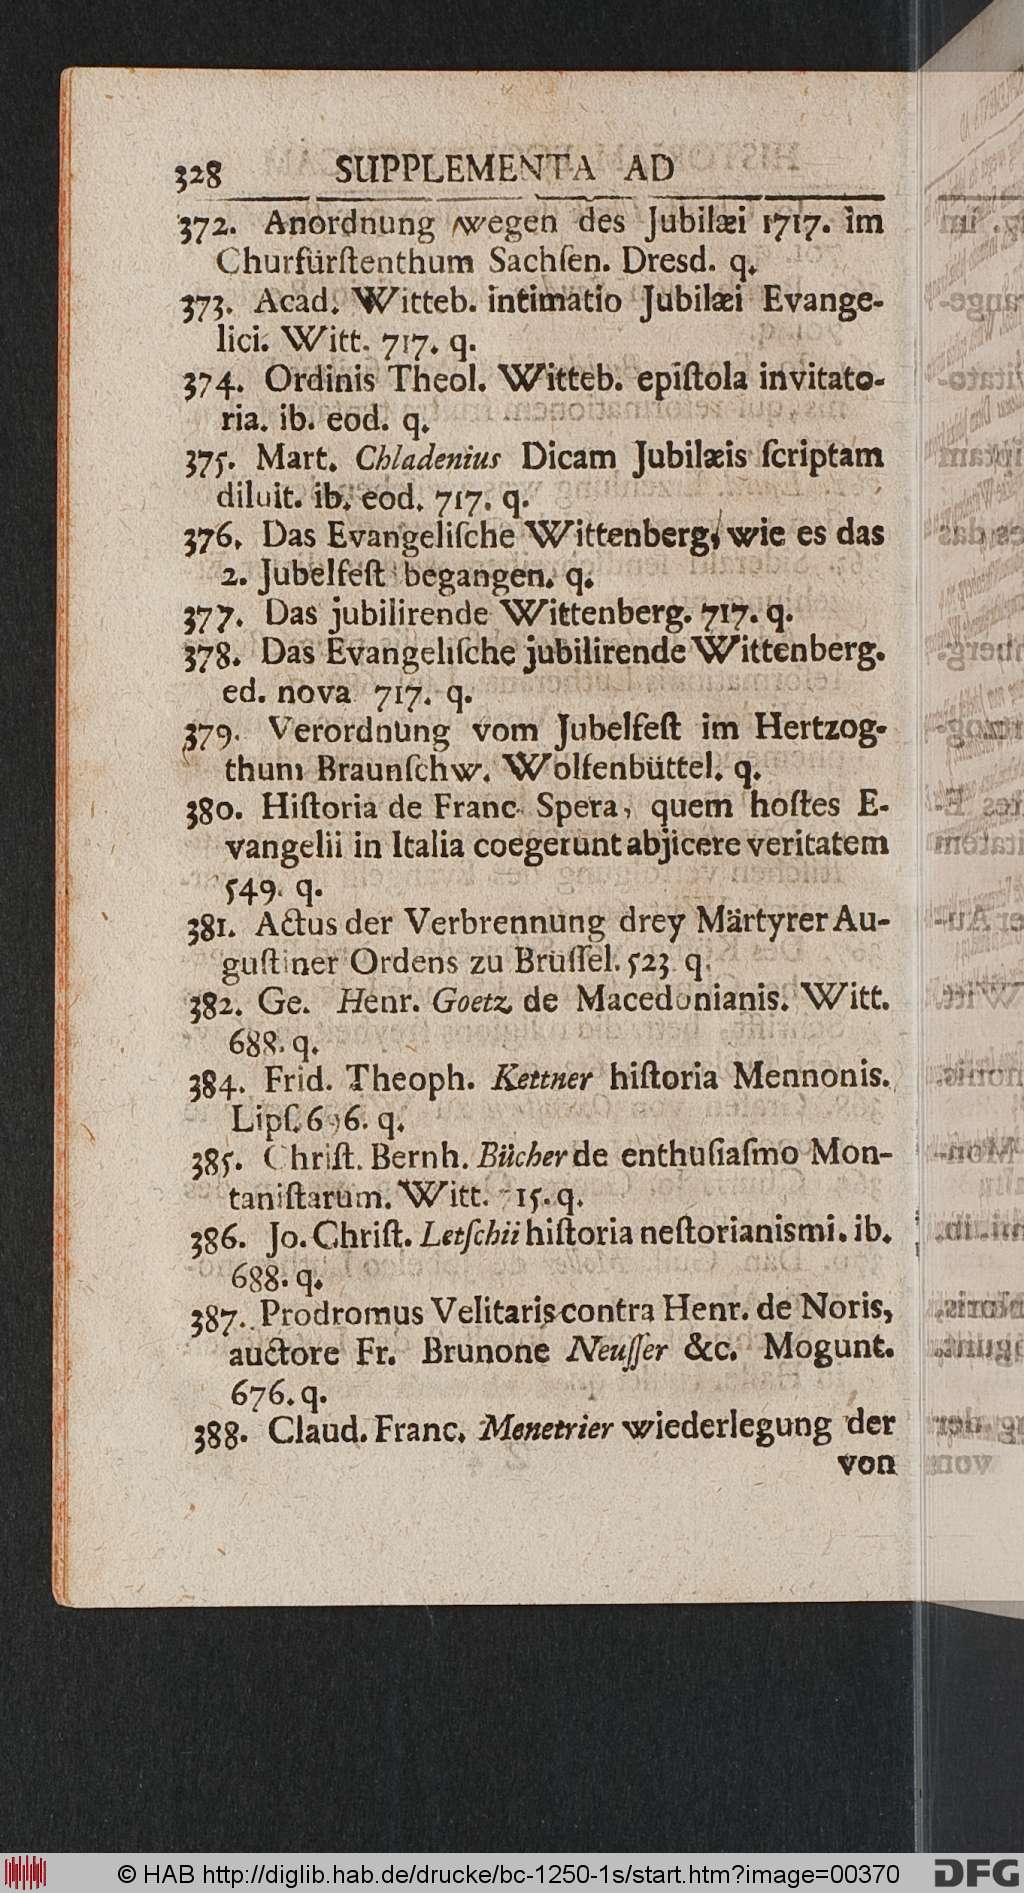 328 SUPPLEMENTA AD
372. Anordnung wegen des Jubilæi 1717. im
Churfürſtenthum Sachſen. Dresd. q.
373. Acad. Witteb. intimatio Jubilæi Evange-
lici. Witt. 717. q.
374. Ordinis Theol. Witteb. epiſtola invitato-
ria. ib. eod. q.
375. Mart. Chladenius Dicam Jubilæis ſcriptam
diluit. ib. eod. 717. q.
376. Das Evangeliſche Wittenberg, wie es das
2. Jubelfeſt begangen. q.
377. Das jubilirende Wittenberg. 717. q.
378. Das Evangeliſche jubilirende Wittenberg.
ed. nova 717. q.
379. Verordnung vom Jubelfeſt im Hertzog-
thum Braunſchw. Wolfenbüttel. q.
380. Hiſtoria de Franc. Spera, quem hoſtes E-
vangelii in Italia coegerunt abjicere veritatem
549. q.
381. Actus der Verbrennung drey Märtyrer Au-
guſtiner Ordens zu Brüſſel. 523. q.
382. Ge. Henr. Goetz de Macedonianis. Witt.
688. q.
384. Frid. Theoph. Kettner hiſtoria Mennonis.
Lipſ. 696. q.
385. Chriſt. Bernh. Bücher de enthuſiaſmo Mon-
taniſtarum. Witt. 715. q.
386. Jo. Chriſt. Letſchii hiſtoria neſtorianismi. ib.
688. q.
387. Prodromus Velitaris contra Henr. de Noris,
auctore Fr. Brunone Neuſſer &c. Mogunt.
676. q.
388. Claud. Franc. Menetrier wiederlegung der
von
© HAB http://diglib.hab.de/drucke/bc-1250-1s/start.htm?image=00370 DFG